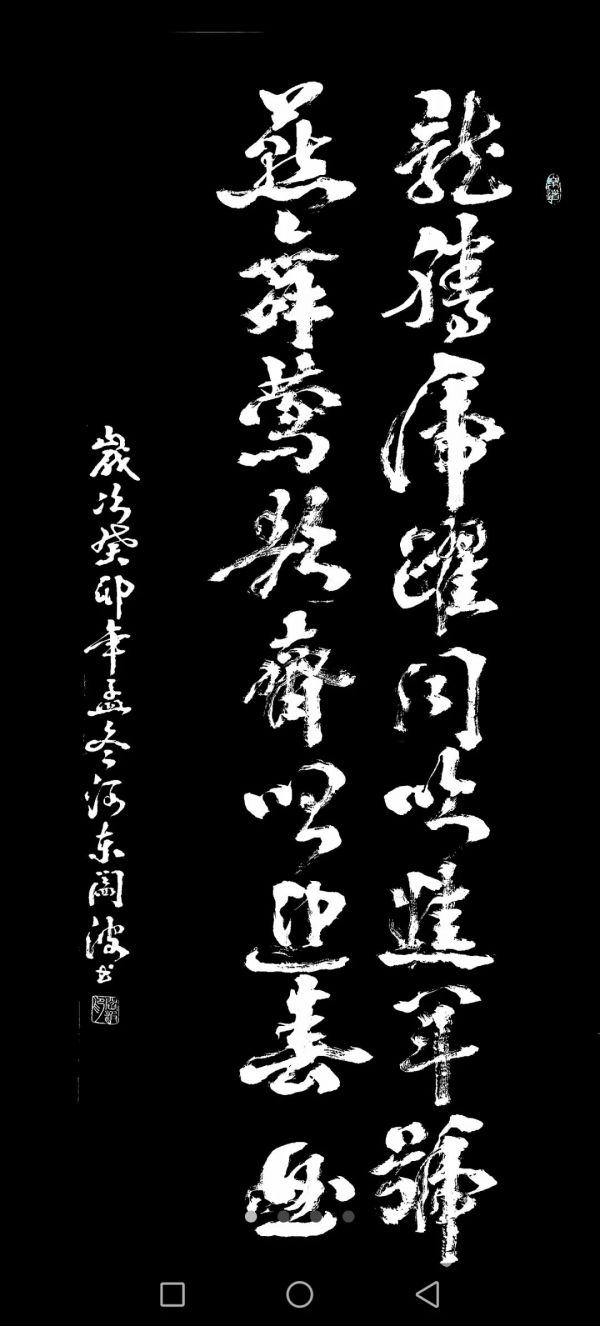 龍騰虎躍同吹進軍號
燕舞鶯歌齊唱迎春曲
歲次癸卯年孟冬河東閻波书